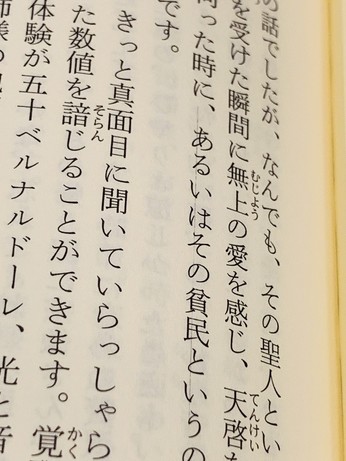 の話でしたが、なんでも、その聖人とい
を受けた瞬間に無上の愛を感じ、天啓
むじよう
てんけい
った時に、あるいはその貧民というの
です。
きっと真面目に聞いていらっしゃら
た数値を諳じることができます。覚
そらん
かく
体験が五十ベルナルドーレ、光と音